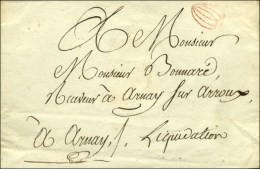 A Monsieur
Monsieur Bonnard,
Receveur à Arnay sur Arroux,
à Arnay s/. Liquidation